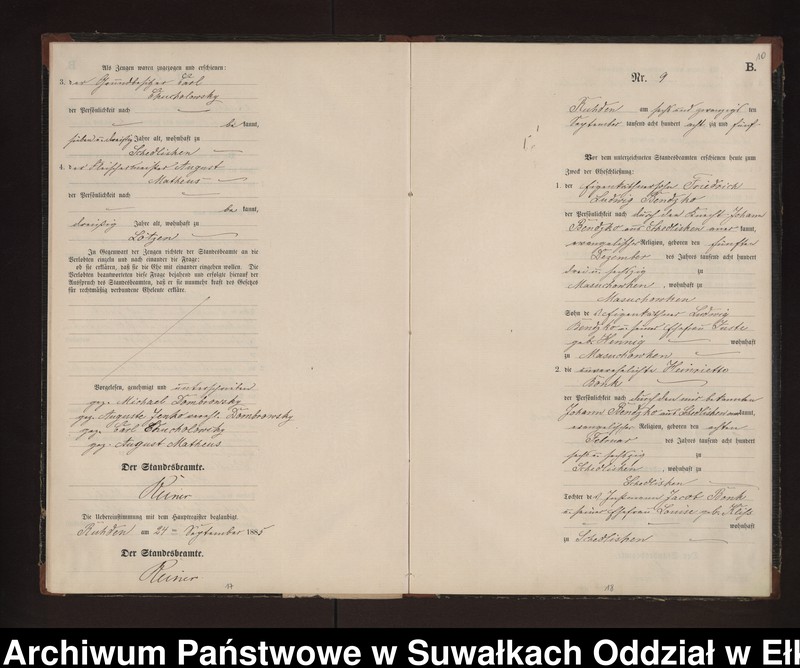 Als Zeugen waren zugezogen und erschienen:
3. der Grundbesitzer Carl
Chucholowsky
der Persönlichkeit nach
be kannt,
sieben und dreißig Jahre alt, wohnhaft zu
Schedlisken
4. der Fleischermeister August
Matheus
der Persönlichkeit nach
be kannt,
dreißig Jahre alt, wohnhaft zu
Lötzen
In Gegenwart der Zeugen richtete der Standesbeamte an die
Verlobten einzeln und nach einander die Frage:
ob sie erklären, daß sie die Ehe mit einander eingehen wollen. Die
Verlobten beantworteten diese Frage bejahend und erfolgte hierauf der
Ausspruch des Standesbeamten, daß er sie nunmehr kraft des Gesetzes
für rechtmäßig verbundene Eheleute erkläre.
Vorgelesen, genehmigt und unterschrieben
gez. Michael Dombrowsky
gez. Auguste verehl. Dombrowsky
gez. Carl Chucholowsky
gez. August Matheus
Der Standesbeamte.
Reiner
Die Uebereinstimmung mit dem Hauptregister beglaubigt.
Ruhden am 24 ten September 1885
Der Standesbeamte.
Reiner
10
B.
Nr. 9
Ruhden am sechs und zwanzigs ten
September tausend acht hundert acht zig und fünf
Vor dem unterzeichneten Standesbeamten erschienen heute zum
Zweck der Eheschließung:
1. der Eigenkäthnersohn Friedrich
Ludwig Bendzko
der Persönlichkeit nach durch den Knecht Johann
Bendzko aus Schedlisken aner kannt,
evangelischer Religion, geboren den fünften
Dezember des Jahres tausend acht hundert
drei u. sechzig zu
Masuchowken, wohnhaft zu
Masuchowken
Sohn des Eigenkäthner Ludwig
Bendzko u. seiner Ehefrau Juste
geb. Hennig wohnhaft
zu Masuchowken
2. die unverehelichte Heinriette
Bonk
der Persönlichkeit nach durch den mir bekannten
Johann Bendzko aus Schedlisken anerkannt,
evangelischer Religion, geboren den achten
Februar des Jahres tausend acht hundert
sechs u. sechzig zu
Schedlisken, wohnhaft zu
Schedlisken
Tochter des Jacob Bonk
u. seiner Ehefrau Louise geb.
wohnhaft
zu Schedlisken
Archiwum Państwowe w Suwałkach Oddział w Eł